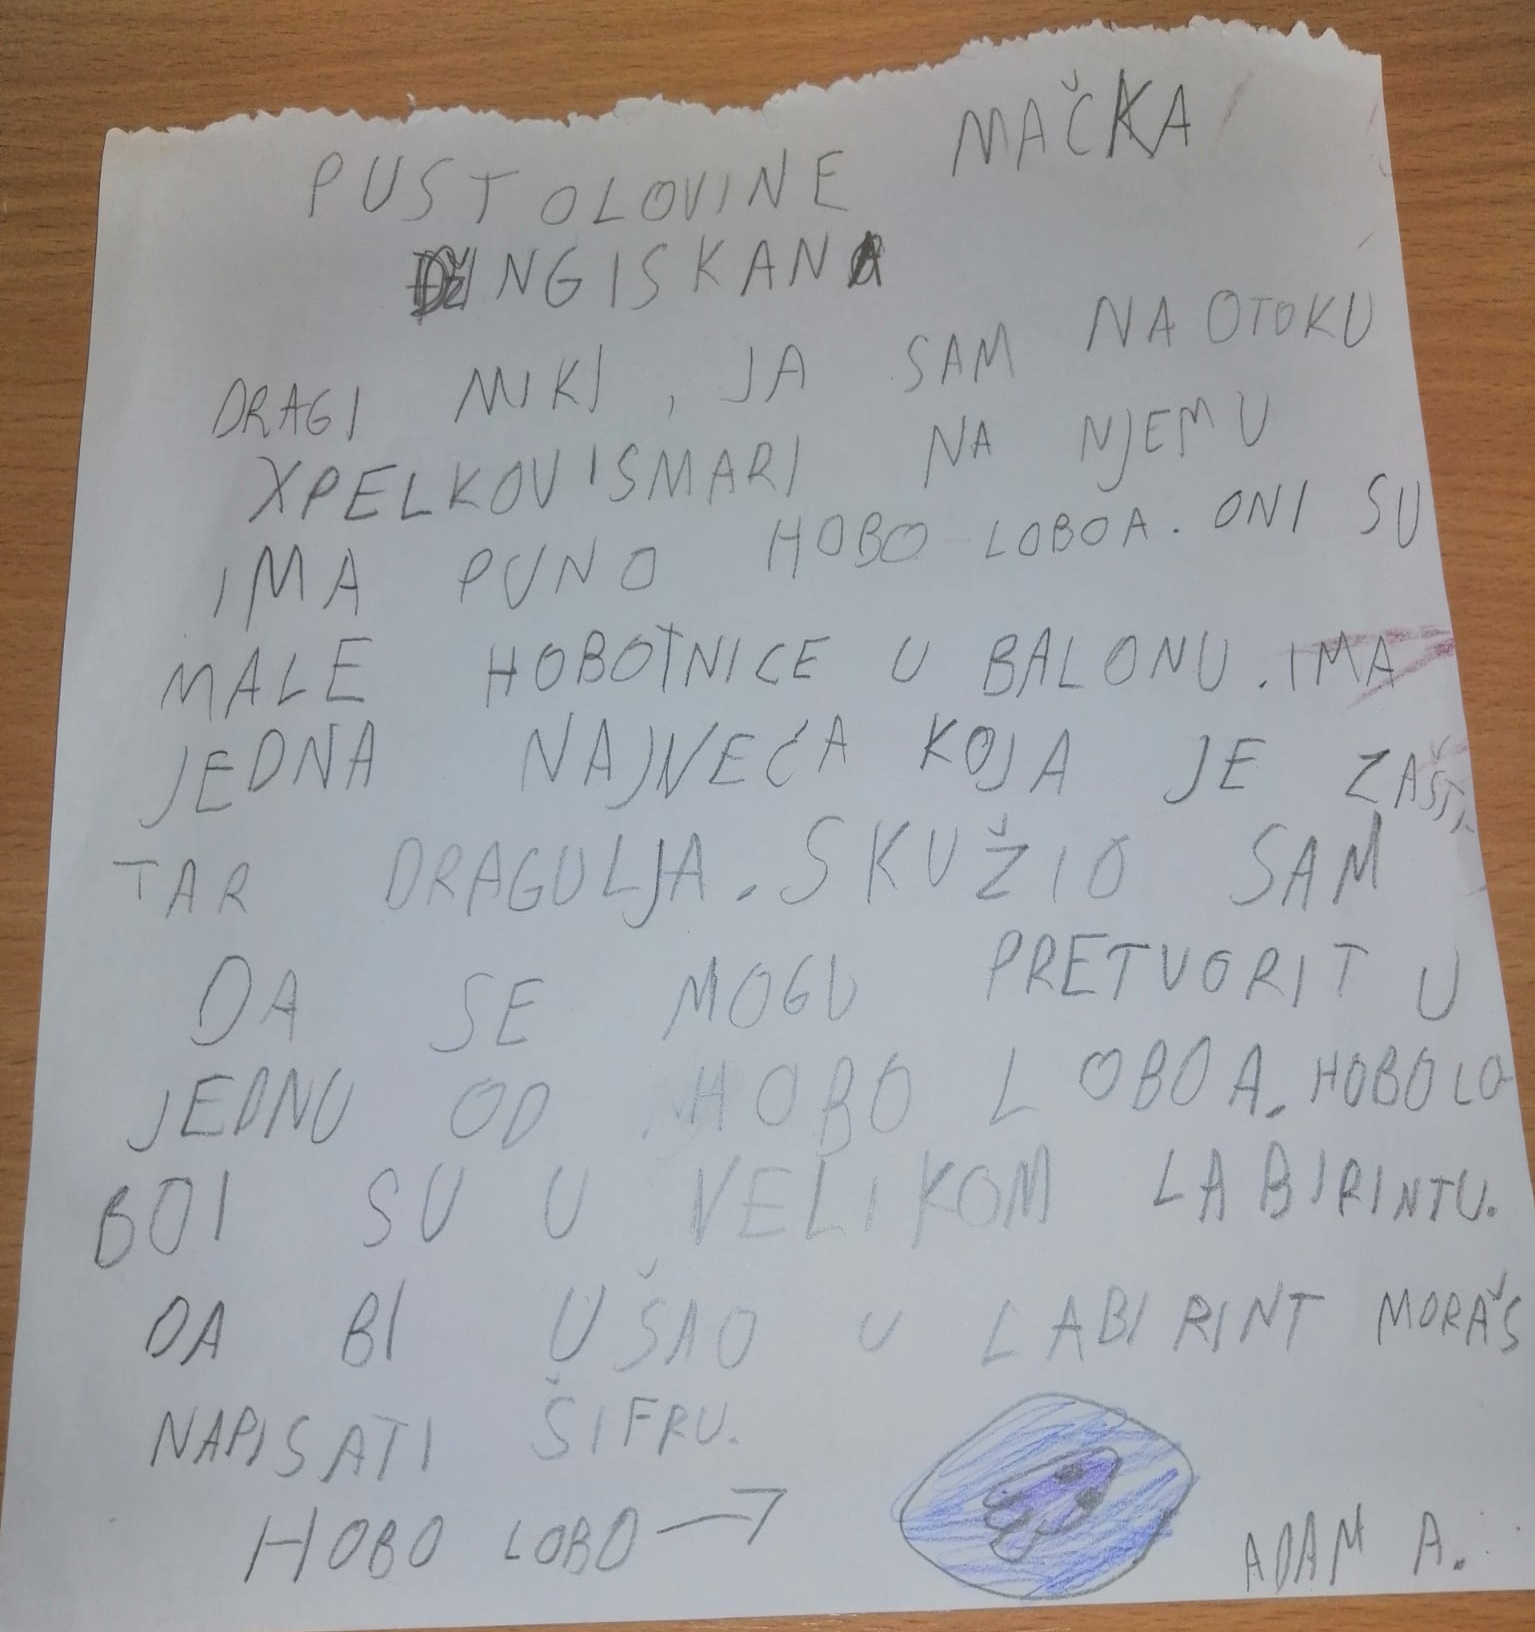 PUSTOLOVINE MAČKA
DŽINGISKANA
DRAGI MIKI, JA SAM NA OTOKU
XPELKOVISMARI NA NJEMU
IMA PUNO HOBO LOBOA. ONI SU
MALE HOBOTNICE U BALONU. IMA
JEDNA NAJVEĆA KOJA JE ZAŠTI
TAR DRAGULJA. SKUŽIO SAM
DA SE MOGU PRETVORIT U
JEDNU OD HOBO LOBOA. HOBO LO
BOI SU U VELIKOM LABIRINTU.
DA BI UŠAO U LABIRINT MORAŠ
NAPISATI ŠIFRU.
HOBO LOBO → ADAM A.